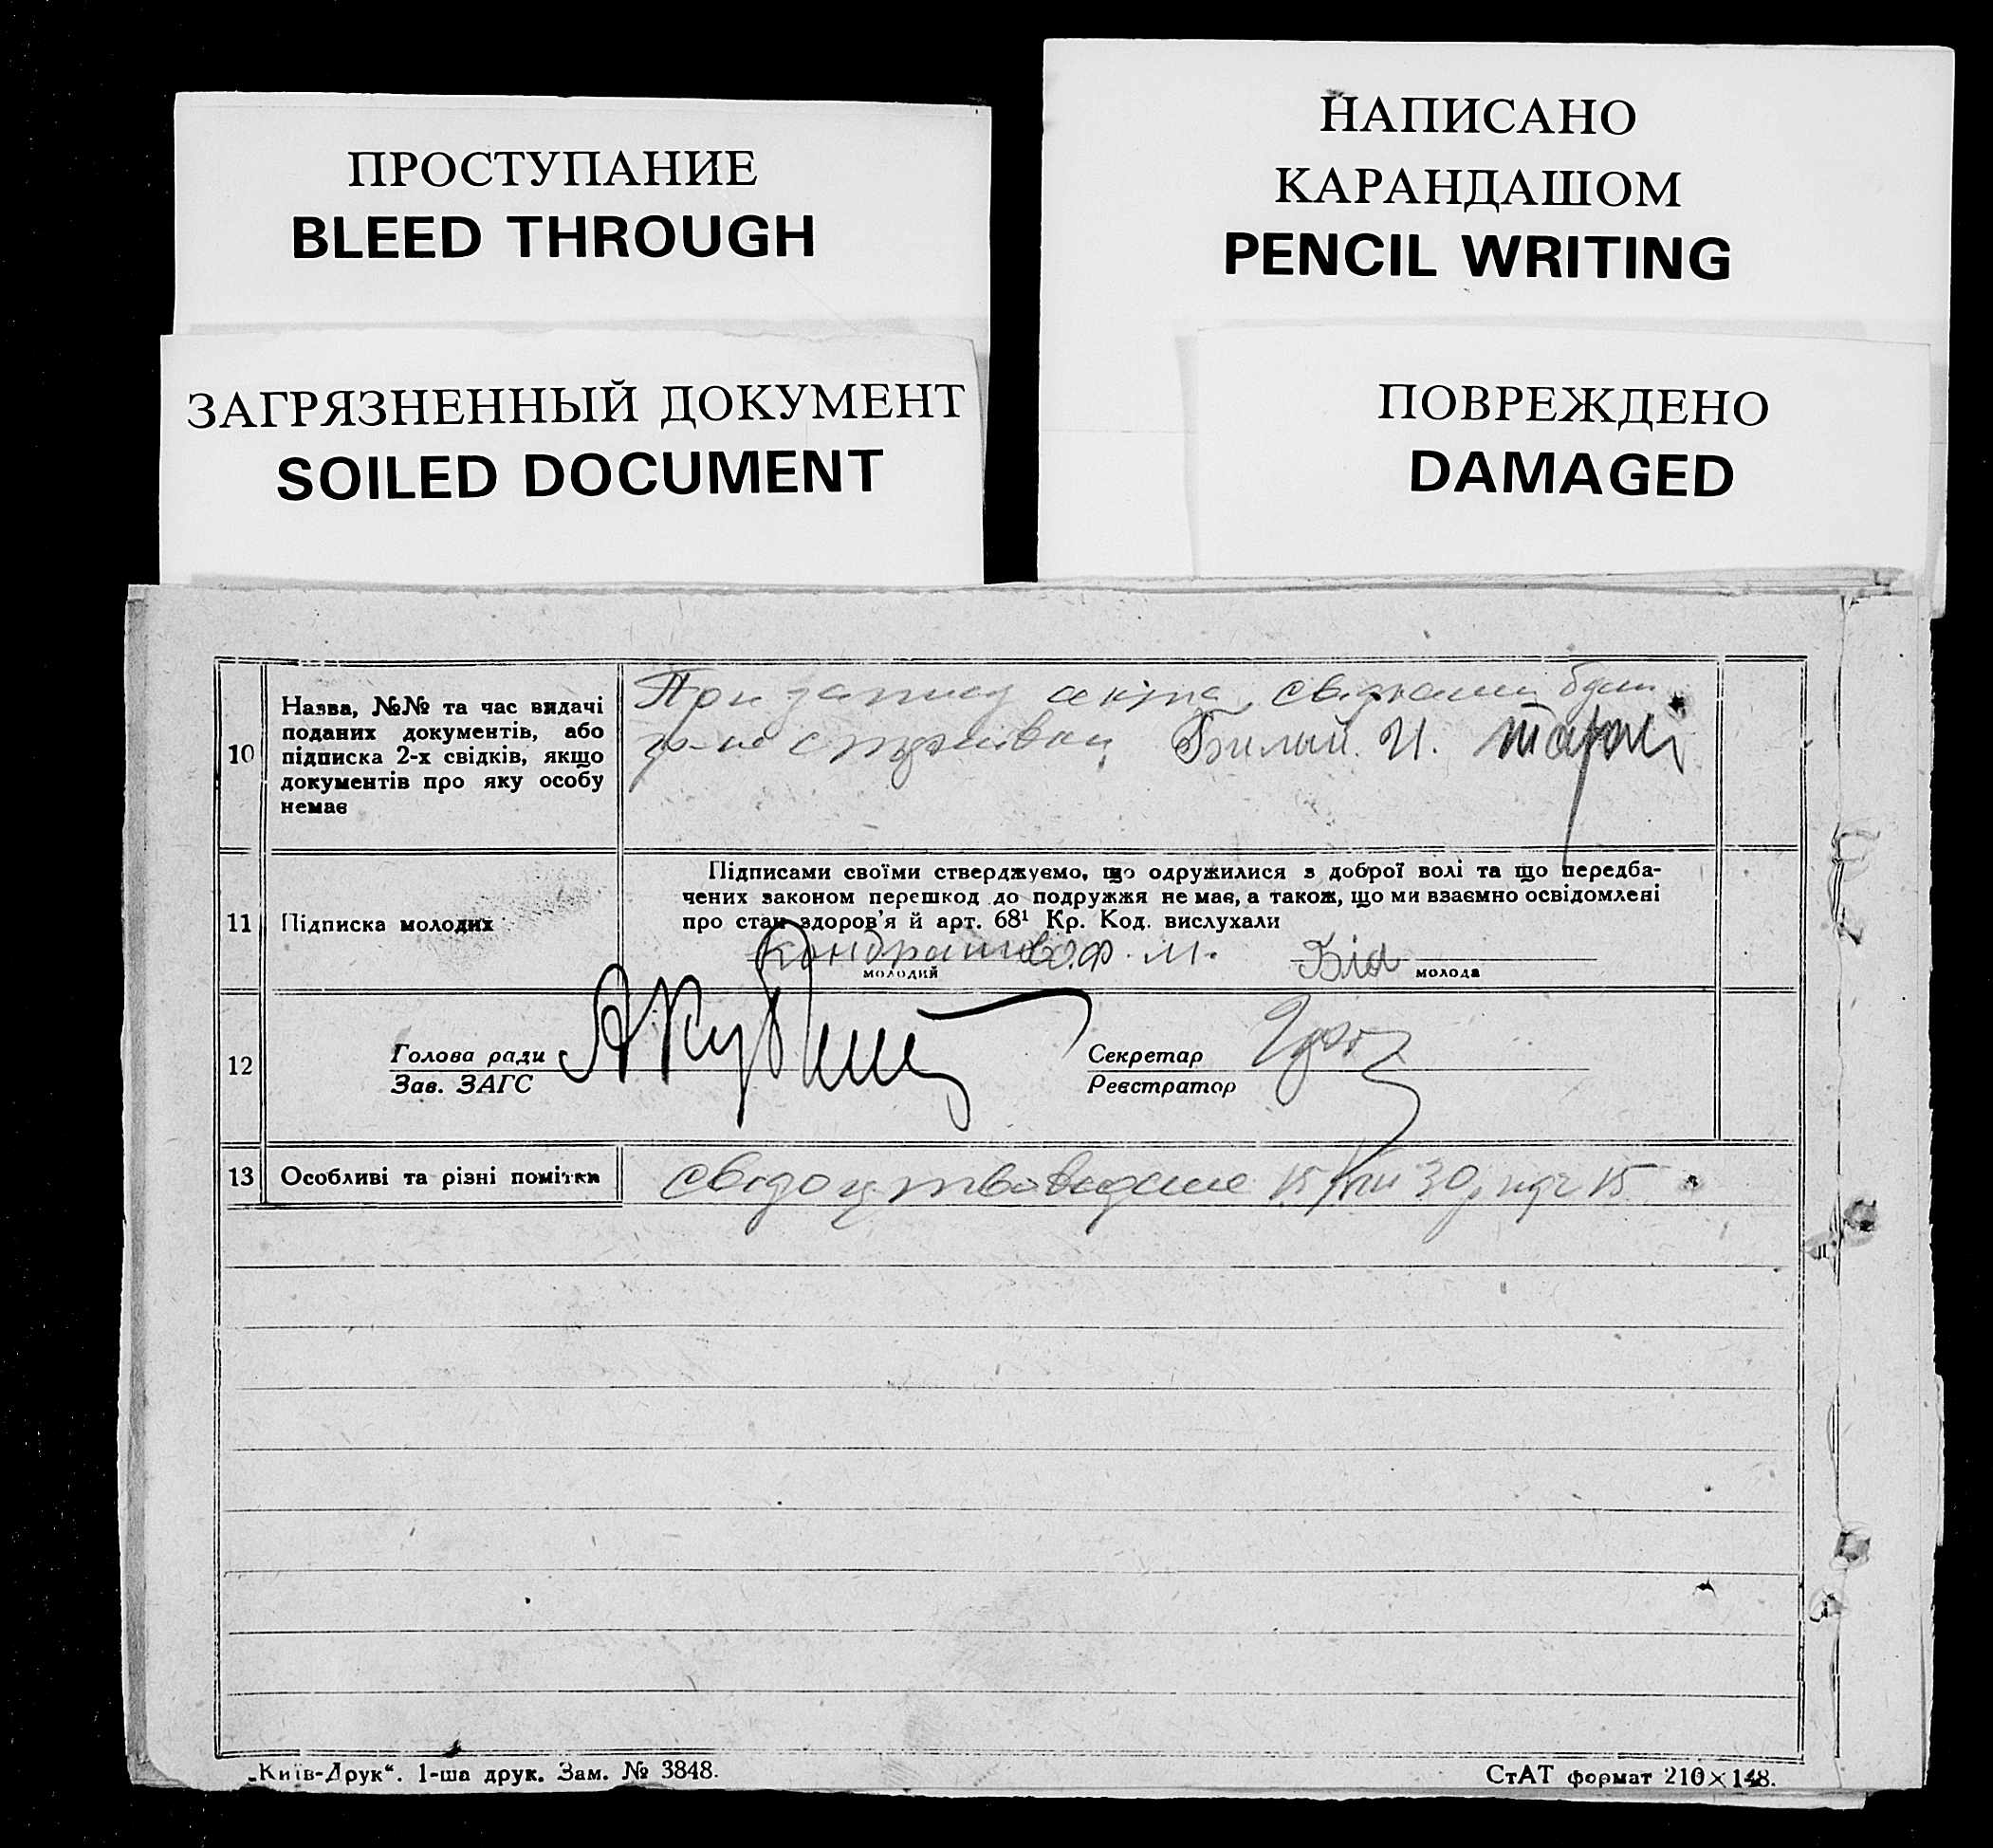 ПРОСТУПАНИЕ
BLEED THROUGH
НАПИСАНО
КАРАНДАШОМ
PENCIL WRITING
ЗАГРЯЗНЕННЫЙ ДОКУМЕНТ
SOILED DOCUMENT
ПОВРЕЖДЕНО
DAMAGED
10
Назва, №№ та час видачі
поданих документів, або
підписка 2-х свідків, якщо
документів про яку особу
немає
При запису акта свідками були
Билий И.
11
Підписка молодих
Підписами своїми стверджуємо, що одружилися з доброї волі та що передба-
чених законом перешкод до подружжя не має, а також, що ми взаємно освідомлені
про стан здоров'я й арт. 68¹ Кр. Код. вислухали
Ф. М. Біла
молодий молода
12
Голова ради
Зав. ЗАГС
Секретар
Реєстратор
13
Особливі та різні помітки
15 30 15
„Київ-Друк“. 1-ша друк. Зам. № 3848.
СтАТ формат 210×148.